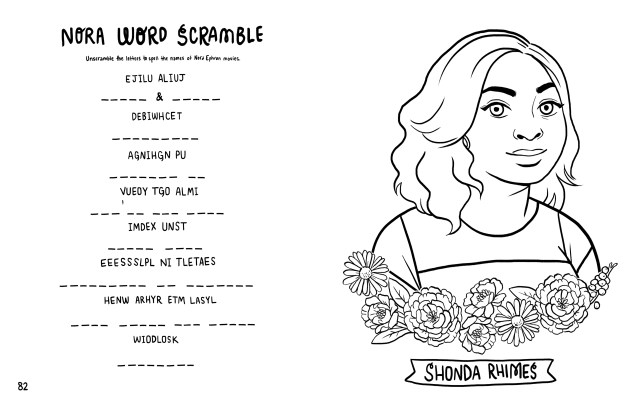 NORA WORD SCRAMBLE
Unscramble the letters to spell the names of Nora Ephron movies.
EJILU ALIUJ
_____ & _____
DEBIWHCET
_________
AGNIHGN PU
_______ __
VUEOY TGO ALMI
___ ___ ___ ____
'
IMDEX UNST
_____ ____
EEESSSLPL NI TLETAES
_________ __ _______
HENW ARHYR ETM LASYL
____ _____ ___ _____
WIODLOSK
________
82
SHONDA RHIMES